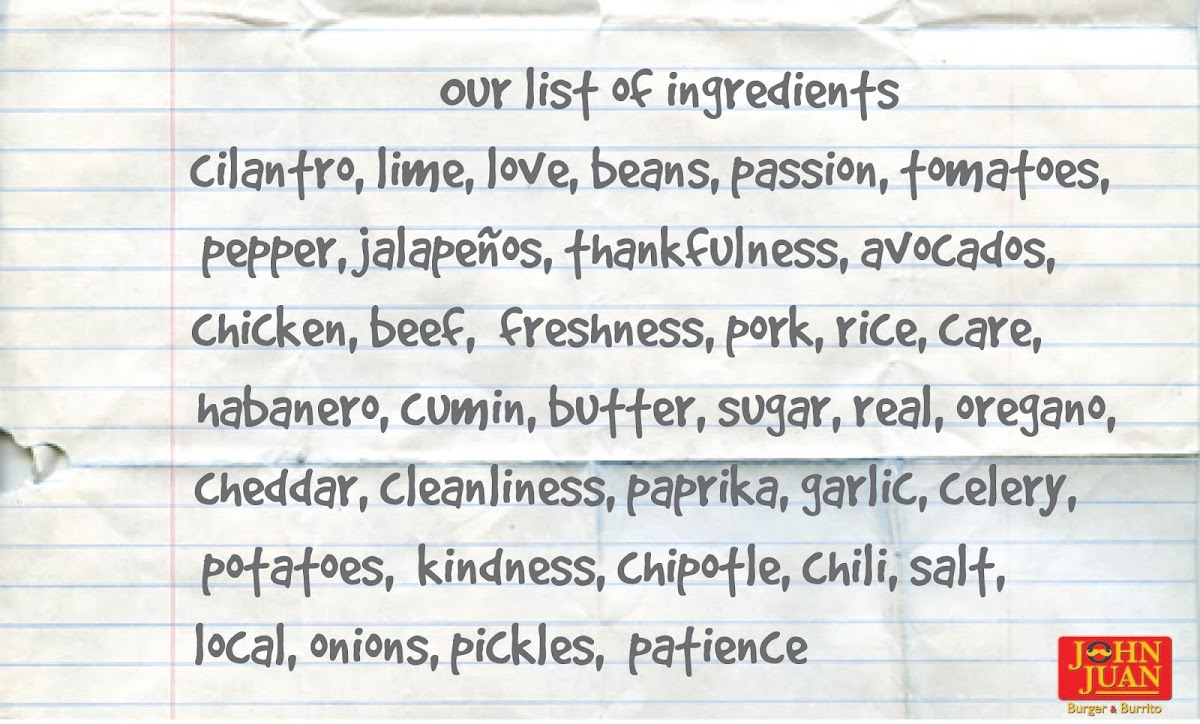 our list of ingredients
cilantro, lime, love, beans, passion, tomatoes,
pepper, jalapeños, thankfulness, avocados,
chicken, beef, freshness, pork, rice, care,
habanero, cumin, butter, sugar, real, oregano,
cheddar, cleanliness, paprika, garlic, celery,
potatoes, kindness, chipotle, chili, salt,
local, onions, pickles, patience
JOHN
JUAN
Burger & Burrito